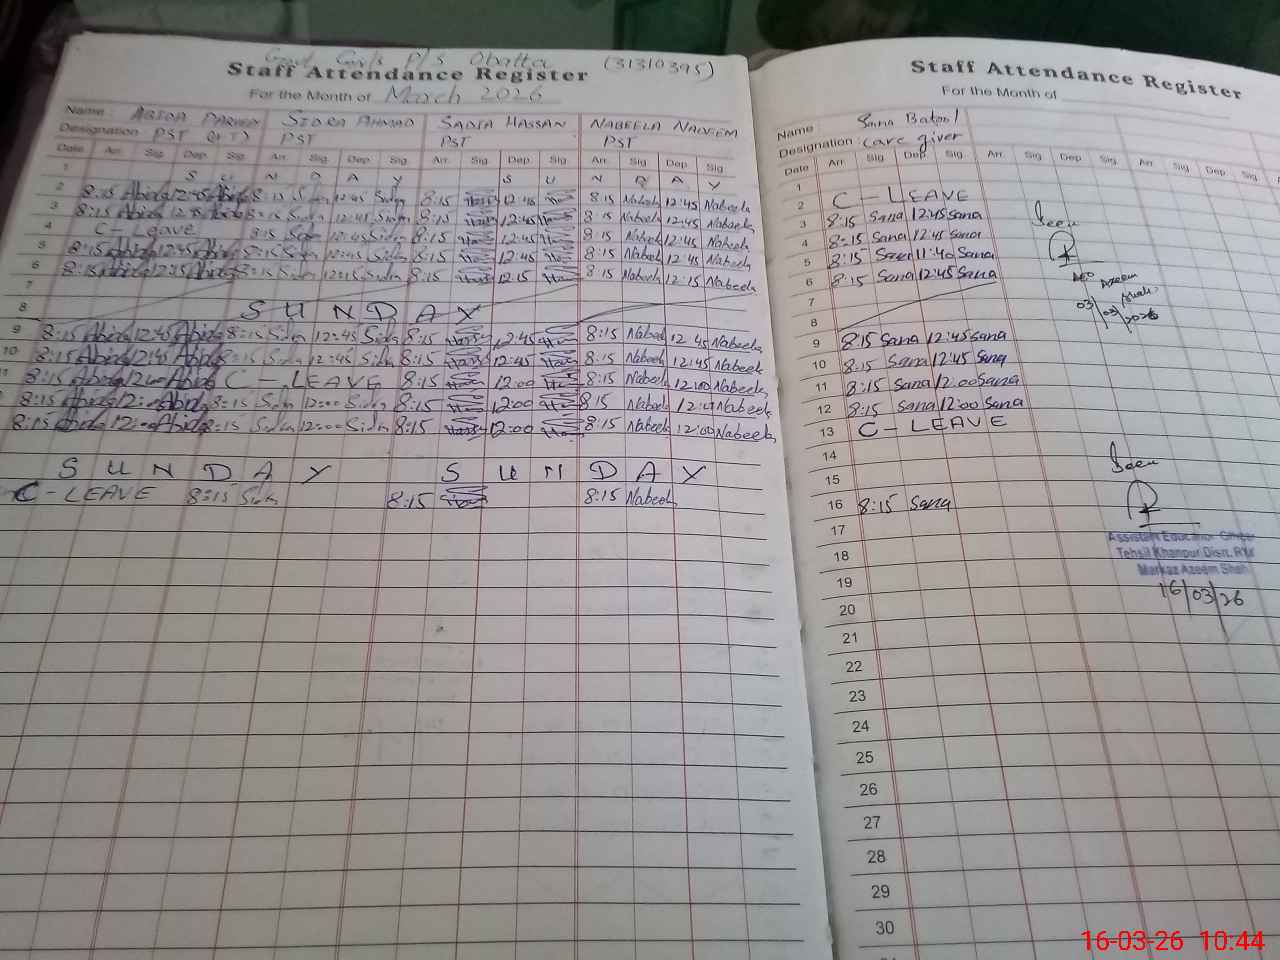 Govt Girls P/S Obatta (31310395)
Staff Attendance Register
For the Month of March 2026
Name: ABIDA PARVEEN SIDRA AHMAD SADIA HASSAN NABEELA NADEEM
Designation PST (H.T) PST PST PST
Date Arr. Sig. Dep. Sig. Arr. Sig. Dep. Sig. Arr. Sig. Dep. Sig. Arr. Sig. Dep. Sig.
1 S U N D A Y S U N D A Y
2 8:15 Abida 12:45 Abida 8:15 Sidra 12:45 Sidra 8:15 12:45 8:15 Nabeela 12:45 Nabeela
3 8:15 Abida 12:45 Abida 8:15 Sidra 12:45 Sidra 8:15 12:45 8:15 Nabeela 12:45 Nabeela
4 C - Leave 8:15 Sidra 12:45 Sidra 8:15 12:45 8:15 Nabeela 12:45 Nabeela
5 8:15 Abida 12:45 Abida 8:15 Sidra 12:45 Sidra 8:15 12:45 8:15 Nabeela 12:45 Nabeela
6 8:15 Abida 12:15 Abida 8:15 Sidra 12:15 Sidra 8:15 12:15 8:15 Nabeela 12:15 Nabeela
7
8 S U N D A Y
9 8:15 Abida 12:45 Abida 8:15 Sidra 12:45 Sidra 8:15 12:45 8:15 Nabeela 12:45 Nabeela
10 8:15 Abida 12:45 Abida 8:15 Sidra 12:45 Sidra 8:15 12:45 8:15 Nabeela 12:45 Nabeela
8:15 Abida 12:00 Abida C - LEAVE 8:15 12:00 8:15 Nabeela 12:00 Nabeela
8:15 Abida 12:00 Abida 8:15 Sidra 12:00 Sidra 8:15 12:00 8:15 Nabeela 12:00 Nabeela
8:15 Abida 12:00 Abida 8:15 Sidra 12:00 Sidra 8:15 12:00 8:15 Nabeela 12:00 Nabeela
S U N D A Y S U N D A Y
C - LEAVE 8:15 Sidra 8:15 8:15 Nabeela
Staff Attendance Register
For the Month of
Name Sana Batool
Designation care giver
Date Arr. Sig. Dep. Sig. Arr. Sig. Dep. Sig. Arr. Sig. Dep. Sig.
1
2 C - LEAVE
3 8:15 Sana 12:45 Sana
4 8:15 Sana 12:45 Sana
5 8:15 Sana 11:40 Sana
6 8:15 Sana 12:45 Sana
7
8
Seen
AEO Azeem Shah
03/03/2026
9 8:15 Sana 12:45 Sana
10 8:15 Sana 12:45 Sana
11 8:15 Sana 12:00 Sana
12 8:15 Sana 12:00 Sana
13 C - LEAVE
14
15
16 8:15 Sana
Seen
Assistant Education Officer
Tehsil Khanpur Distt. RYK
Markaz Azeem Shah
16/03/26
17
18
19
20
21
22
23
24
25
26
27
28
29
30
16-03-26 10:44